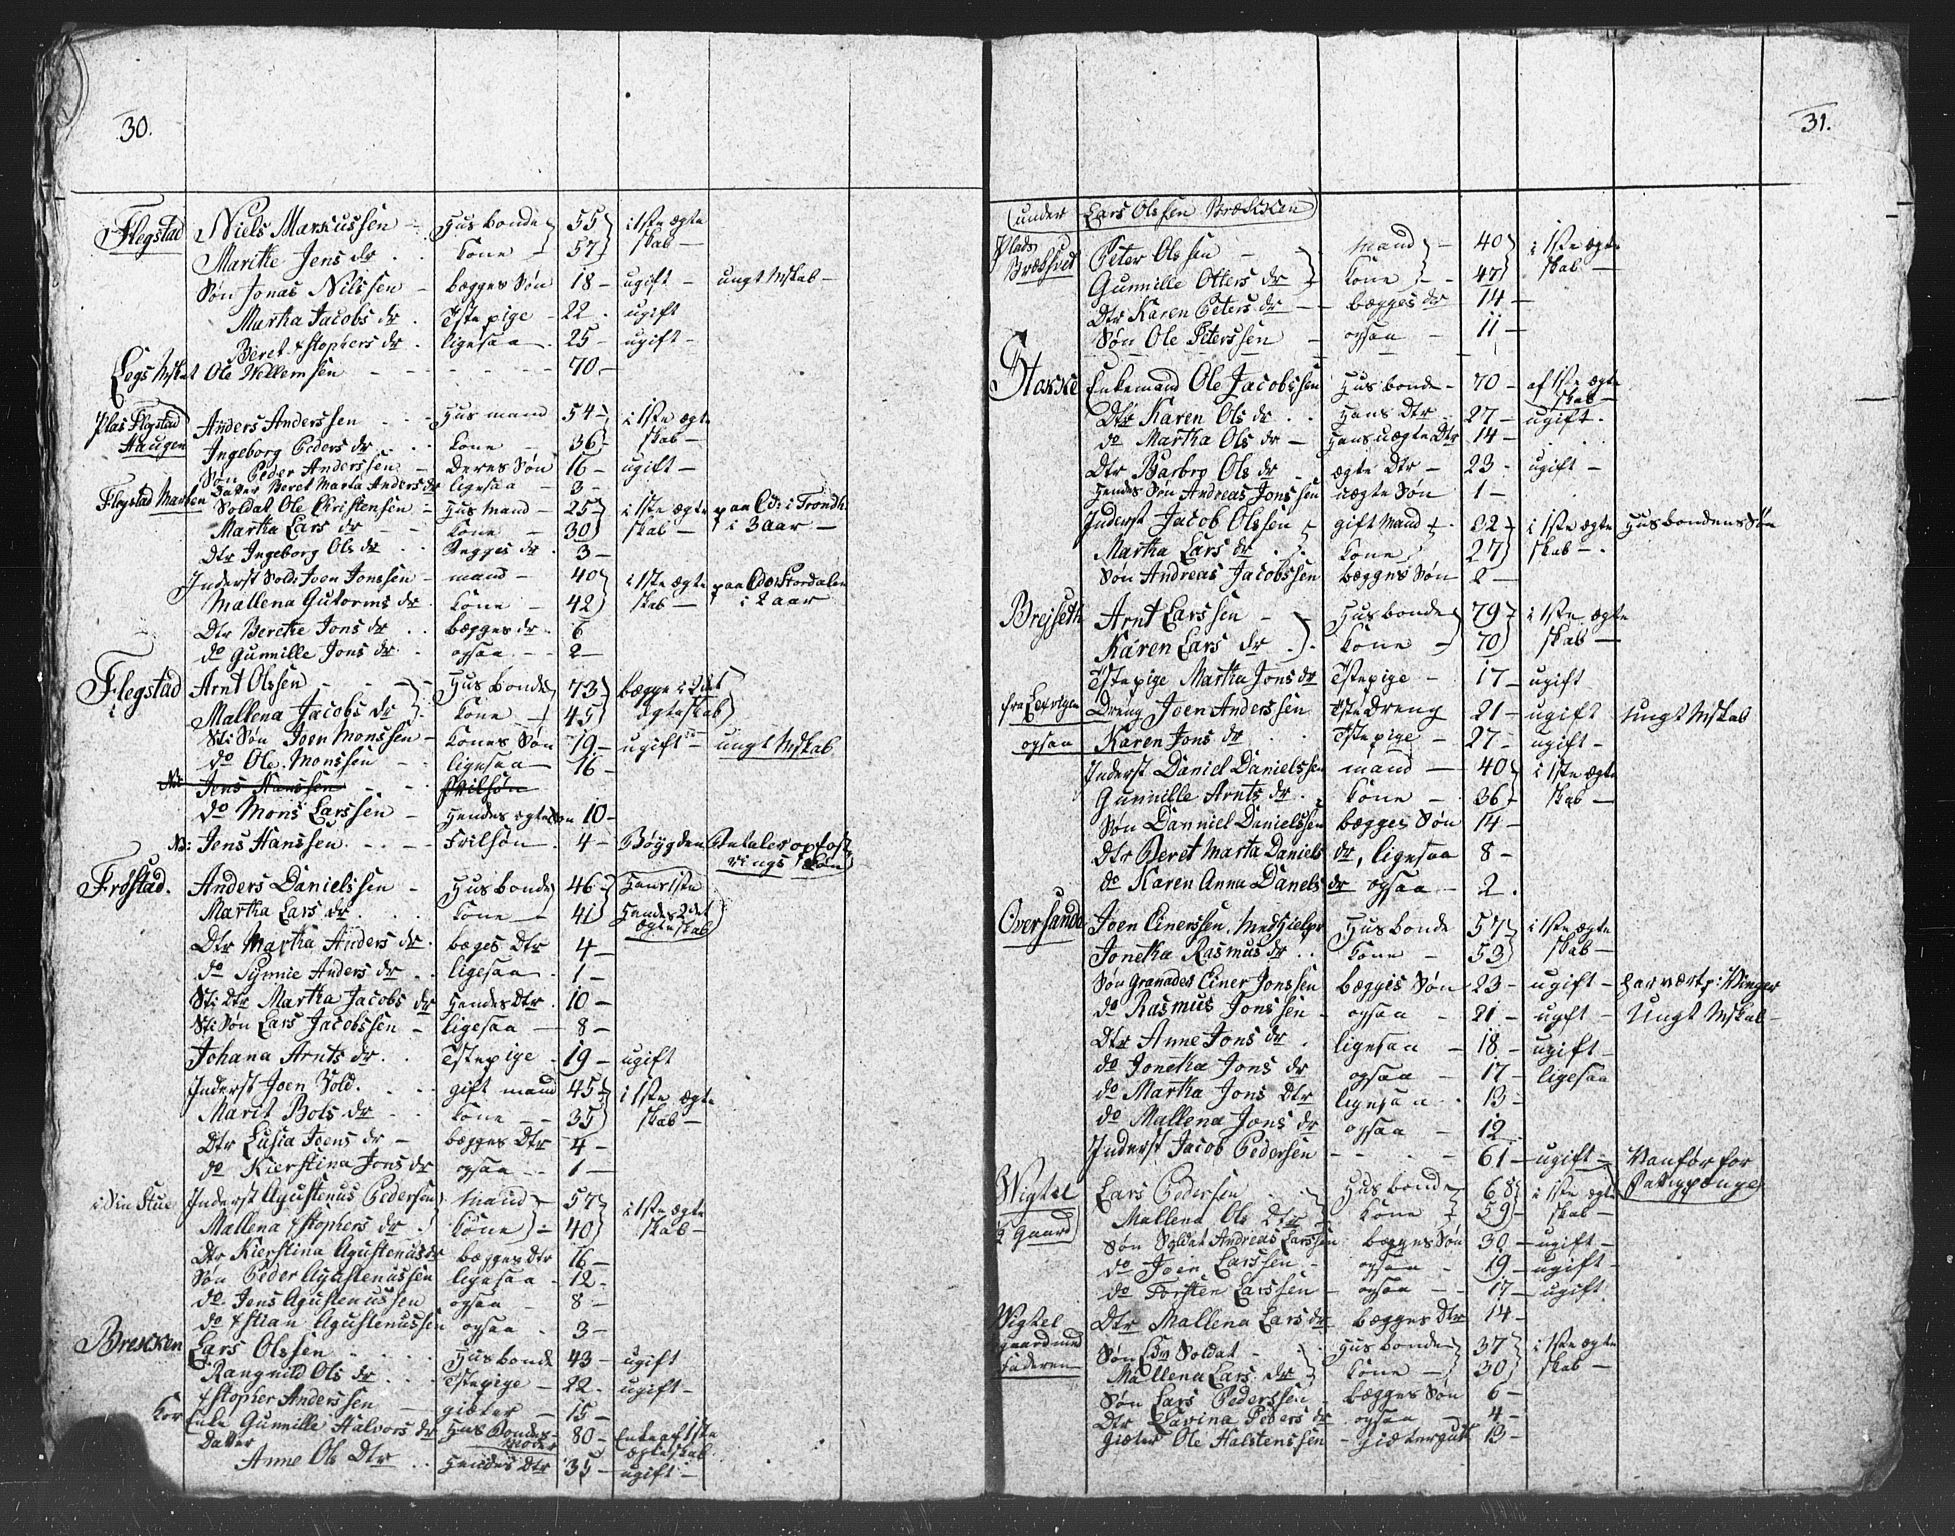 30.
Flegstad Niels Markussen - Husbonde 55 i 1ste ægte
Marithe Jens dr . . Kone - 57 skab -
Søn Jonas Nilssen - bægges Søn 18 - ugift - ungt Mskab -
Martha Jacobs dr . Tstepige - 22 . ugift
Beret Xstophers dr . ligesaa . 25 - ugift -
Legs Mskat Ole Wellemsen - - - - 70 -
Plas Flegstad Anders Anderssen . . Husmand 54 - i 1ste ægte
Haugen Ingeborg Peders dr . . Kone - 36 skab -
Søn Peder Anderssen - Deres Søn 16 - ugift -
Datter Beret Marta Anders dr ligesaa - 3 -
Flegstad Marken Soldat Ole Christensen - Husmand - 25 i 1ste ægte paa Cdi: i Trondh
Martha Lars dr - Kone - 30 skab - i 3 aar -
Dtr Ingeborg Ols dr . . Begges dr . 3 -
Inderst Sold: Joen Jonssen - mand - 40 i 1ste ægte paa Cdi: Stordalen
Mallena Gutorms dr . Kone - 42 skab - i 2 aar
Dtr Berethe Jons dr . . bægges dr . 6
do Gunnille Jons dr . . ogsaa . - - 2 -
Flegstad Arnt Olssen - - - Husbonde 73 bægge i 2det
Mallena Jacobs dr . Kone - 45 ægteskab
Sti Søn Joen Monssen - Kones Søn 19 - ugift - ungt Mskab
do Ole Monssen - ligesaa - 16 -
N: Jens Hanssen - - - Frilsøn
do Mons Larssen - Hendes ægte Søn 10 -
N: Jens Hanssen . . - - Frilsøn . 4 - Bøygden Betaler opfost
rings Løn
Frøstad. Anders Danielssen - Husbonde 46 - Hans 1ste
Martha Lars dr . . . Kone - 41 Hendes 2det
ægteskab
Dtr Martha Anders dr . bæges Dtr 4 -
do Synnie Anders dr . . ligesaa . 1 -
Sti Dtr Martha Jacobs dr Hendes Dtr . 10 -
Sti Søn Lars Jacobssen - ligesaa - 8 -
Johana Arnts dr . . Tstepige . 19 - ugift
Inderst Joen Vold . . . gift mand 45 i 1ste ægte
Marit Bots dr . . Kone - - 35 skab -
Dtr Lusia Joens dr - bægges Dtr 4 -
do Kierstina Jons dr ogsaa . . 1 -
i Sin Stue Inderst Agustenus Pedersen mand - 57 i 1ste ægte
Mallena Xstophers dr . Kone - 40 skab -
Dtr Kierstina Agustenus dr bægges Dtr 16 -
Søn Peder Agustenussen ligesaa - 12 -
do Jens Agustenussen ogsaa - 8 -
do Xstian Agustenussen ogsaa . 3 -
Brekken Lars Olssen . . . . Husbonde 43 - ugift
Rangnild Ols dr . . . Tstepige - 22 . ugift -
Xstopher Anderssen - giæter - 15 -
Kor Enke Gunnille Halvors dr Hus Bondes 80 - Enke af 1ste
Datter Moder ægteskab
Anne Ols Dtr . . Hendes Dtr 35 - ugift -
31.
under Lars Olssen Brækken
Plads Peter Olssen - Mand - 40 i 1ste ægte
Brækhuet Gunnille Otters dr Kone - 47 skab -
Dtr Karen Peters dr - - bægges dr 14 -
Søn Ole Peterssen - ogsaa - 11 -
Stokke Enkemand Ole Jacobssen Husbonde - 70 - af 1ste ægte
skab -
Dtr Karen Ols dr . . Hans Dtr . 27 - ugift .
do Martha Ols dr - Hans uægte Dtr 14 -
Dtr Barbro Ols dr - ægte Dtr - 23 . ugift -
Hendes Søn Andreas Jonssen uægte Søn 1 -
Inderst Jacob Olssen gift Mand . 22 i 1ste ægte Husbondens Søn
Martha Lars dr . . Kone 27 skab - .
Søn Andreas Jacobssen bægges Søn 2 -
Brejseth Arnt Larssen - - Husbonde 79 i 1ste ægte
Karen Lars dr . . Kone - 70 skab -
Tstepige Martha Jons dr Tstepige - 17 - ugift
fra Lexvigen Dreng Joen Anderssen Tstedreng 21 - ugift ungt Mskab
ogsaa Karen Jons dr . . Tstepige - 27 - ugift -
Inderst Daniel Danielssen mand - 40 i 1ste ægte
Gunnille Arnts dr . . Kone - . 36 skab -
Søn Danniel Danielssen bægges Søn 14 -
Dtr Beret Marta Daniels dr, ligesaa 8 -
do Karen Anna Daniels dr ogsaa - 2 .
Oversande Joen Einerssen, Medhielper Husbonde 57 i 1ste ægte
Jonetha Rasmus dr . . Kone - 53 skab -
Søn Granader Einer Jonssen bæggis Søn 23 - ugift - har vært p: Vinger
do Rasmus Jonssen - ogsaa - 21 - ugift - Ungt Mskab -
Dtr Anne Jons dr . ligesaa - 18 - ugift -
do Jonetha Jons dr ogsaa - 17 - ligesaa
do Martha Jons Dtr ligesaa . 13 -
do Mallena Jons dr ogsaa - 12
Inderst Jacob Pedersen - - - - 61 - ugift - Vanfør for
Fattigpænge
Wigtel Lars Pedersen . . Husbonde 68 i 1ste ægte
Mallena Ols Dtr Kone 59 skab -
½ Gaard Søn Soldat Andreas Larssen bægges Søn 30 - ugift -
do Joen Larssen - ogsaa - 19 - ugift -
do Torsten Larssen - ogsaa - - 17 - ugift .
Wigtel Dtr Mallena Lars dr bægges Dtr 14 -
gaard med Søn Soldat - Husbonde 37 i 1ste ægte
Faderen Mallena Lars dr Kone - 30 skab -
Søn Lars Pederssen bægges Søn 6 -
Dtr Lavina Peders dr ogsaa 4 -
Giæter Ole Halstenssen - Giætergutt 13 -